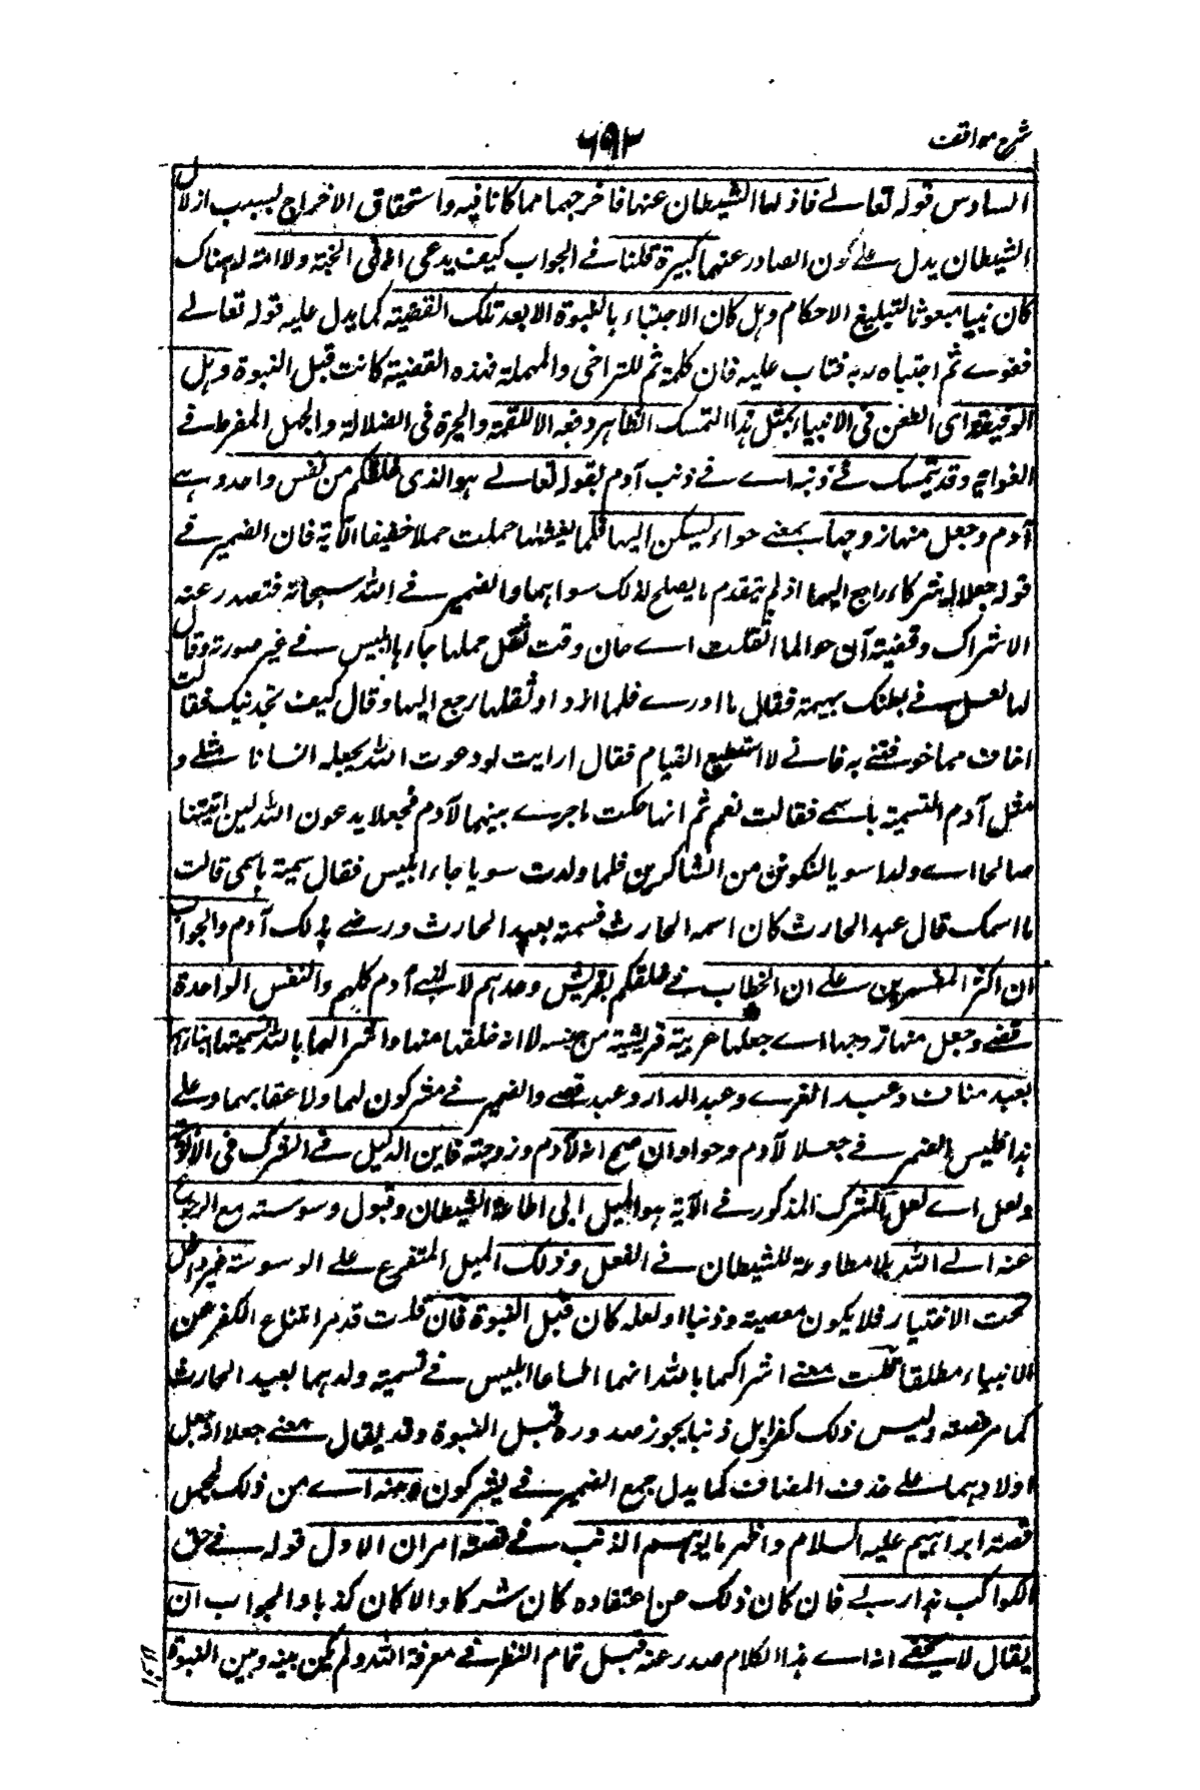 شرح مواقف
٦٩٣
السادس قوله تعالے فازلهما الشيطان عنها فاخرجهما مما كانا فيه واستحقاق الاخراج بسبب ازلال
الشيطان يدل علے كون الصادر عنهما كبيرة قلنا فے الجواب كيف يدعى انه فى الجنة ولا امة له هناك
كان نبيا مبعوثا لتبليغ الاحكام وهل كان الاجتباء بالنبوة الا بعد تلك القضية كما يدل عليه قوله تعالے
فغوے ثم اجتباه ربه فتاب عليه فان كلمة ثم للتراخى والمهملة فهذه القضية كانت قبل النبوة وهل
الوقيعة اى الطعن فى الانبياء بمثل هذا التمسك الظاهر دفعه الا للقمة والحيرة فى الضلالة والجهل المفرط فے
الغواية وقد يتمسك فے ذنبه اے فے ذنب آدم بقوله تعالے هو الذى خلقكم من نفس واحدة هے
آدم وجعل منها زوجها يمعنے حواء ليسكن اليها فلما تغشاها حملت حملا خفيفا الآية فان الضمير فے
قوله جعلا له شركاء راجع اليهما اذ لم يتقدم ما يصلح لذلك سواهما والضمير فے له لله سبحانه فتصدر عنه
الاشراك وقضيته ان حوا لما اثقلت اے حان وقت ثقل حملها جاءها ابليس فے غير صورته وقال
لها لعل فے بطنك بهيمة فقالت ما ادرے فلما ازداد ثقلها رجع اليها وقال كيف تجدينك فقالت
اخاف مما خوفتنے به فانے لا استطيع القيام فقال ارايت لو دعوت الله يجعله انسانا مثلے و
مثل آدم اتسميه باسمے فقالت نعم ثم انها حكت ما جرے بينهما لآدم فجعلا يدعون الله لئن اتيتنا
صالحا اے ولدا سويا لنكونن من الشاكرين فلما ولدت سويا جاء ابليس فقال سميه باسمى قالت
ما اسمك قال عبد الحارث كان اسمه الحارث فسمته بعبد الحارث ورضے بذلك آدم والجواب
ان اكثر المفسرين علے ان الخطاب فے خلقكم لقريش وحدهم لا لبنے آدم كلهم والنفس الواحدة
قصے وجعل منها زوجها اے جعلها عربية قريشية من جنسه لا انه خلقها منها واشراكهما بالله تسميتهما ابناءهم
بعبد مناف وعبد العزے وعبد الدار وعبد قصے والضمير فے يشركون لهما ولاعقابهما وعلے
هذا فليس الضمير فے جعلا لآدم وحوا وان صح انه لآدم وزوجته فاين الدليل فے الشرك فى الالوهية
ولعل اے لعل الشرك المذكور فے الآية هو الميل الى اطاعة الشيطان وقبول وسوسته مع الرجوع
عنه الے الله بلا مطاوعة للشيطان فے الفعل وذلك الميل المتفرع علے الوسوسة غير داخل
تحت الاختيار فلا يكون معصية وذنبا او لعله كان قبل النبوة فان قلت قد مر امتناع الكفر عن
الانبياء مطلقا قلت معنے اشراكهما بالله انهما اطاعا ابليس فے تسمية ولدهما بعبد الحارث
كما مر قصته وليس ذلك كفرا بل ذنبا يجوز صدوره قبل النبوة وقد يقال معنے جعلا له جعل
اولادهما علے حذف المضاف كما يدل جمع الضمير فے يشركون ومنه اے من ذلك المجمل
قصة ابراهيم عليه السلام واظهر ما يوهم الذنب فے قصته امران الاول قوله فے حق
الكواكب هذا ربے فان كان ذلك عن اعتقاده كان شركا والا كان كذبا والجواب ان
يقال لا يخفے انه اے هذا الكلام صدر عنه قبل تمام النظر فے معرفة الله ولم يكن بينه وبين النبوة